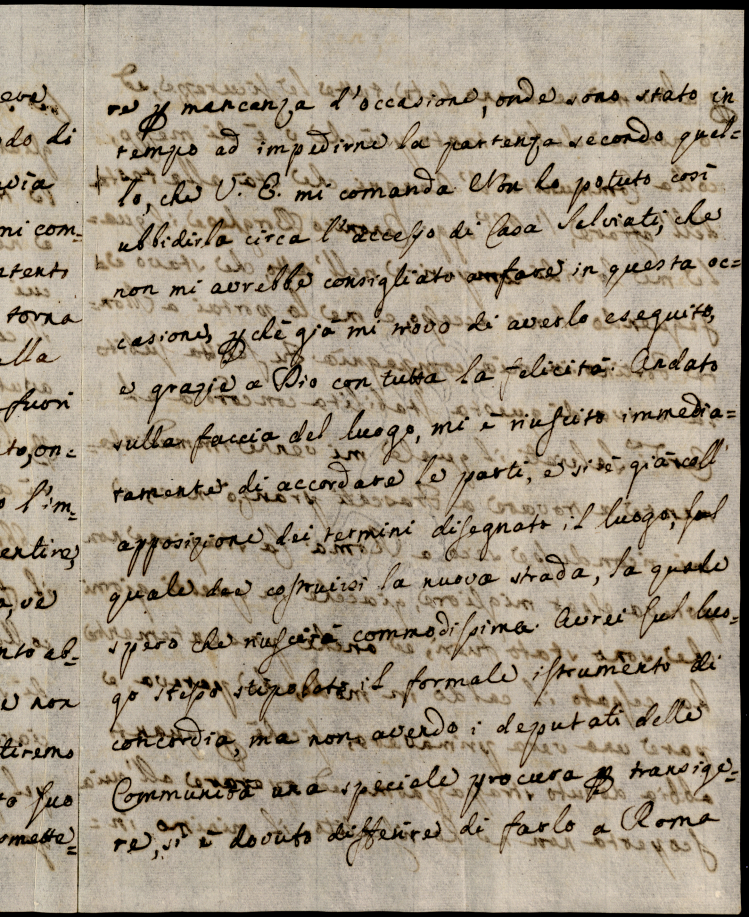 eve
re p mancanza d'occasione, onde sono stato in
do di
tempo ad impedirne la partenza secondo quel=
via
lo, che V. E. mi comanda. Non ho potuto così
mi com=
ubbidirla circa l'accesso di Casa Salviati, che
tento
non mi avrebbe consigliato a fare in questa oc=
torna
casione, p chè già mi trovo di averlo eseguito,
ella
e grazie a Dio con tutta la felicità. Andato
fuori
sulla faccia del luogo, mi è riuscito immedia=
to, on=
tamente di accordare le parti, e si è già coll'
o l'im=
apposizione dei termini disegnato il luogo, sul
entire,
quale dee costruirsi la nuova strada, la quale
a, ve
spero che riuscirà commodissima. Avrei sul luo=
nto ab=
go stesso stipolato il formale istrumento di
e non
concordia, ma non avendo i deputati delle
tiremo
Communità una speciale procura p transige=
to suo
re, si è dovuto differire di farlo a Roma
omette=